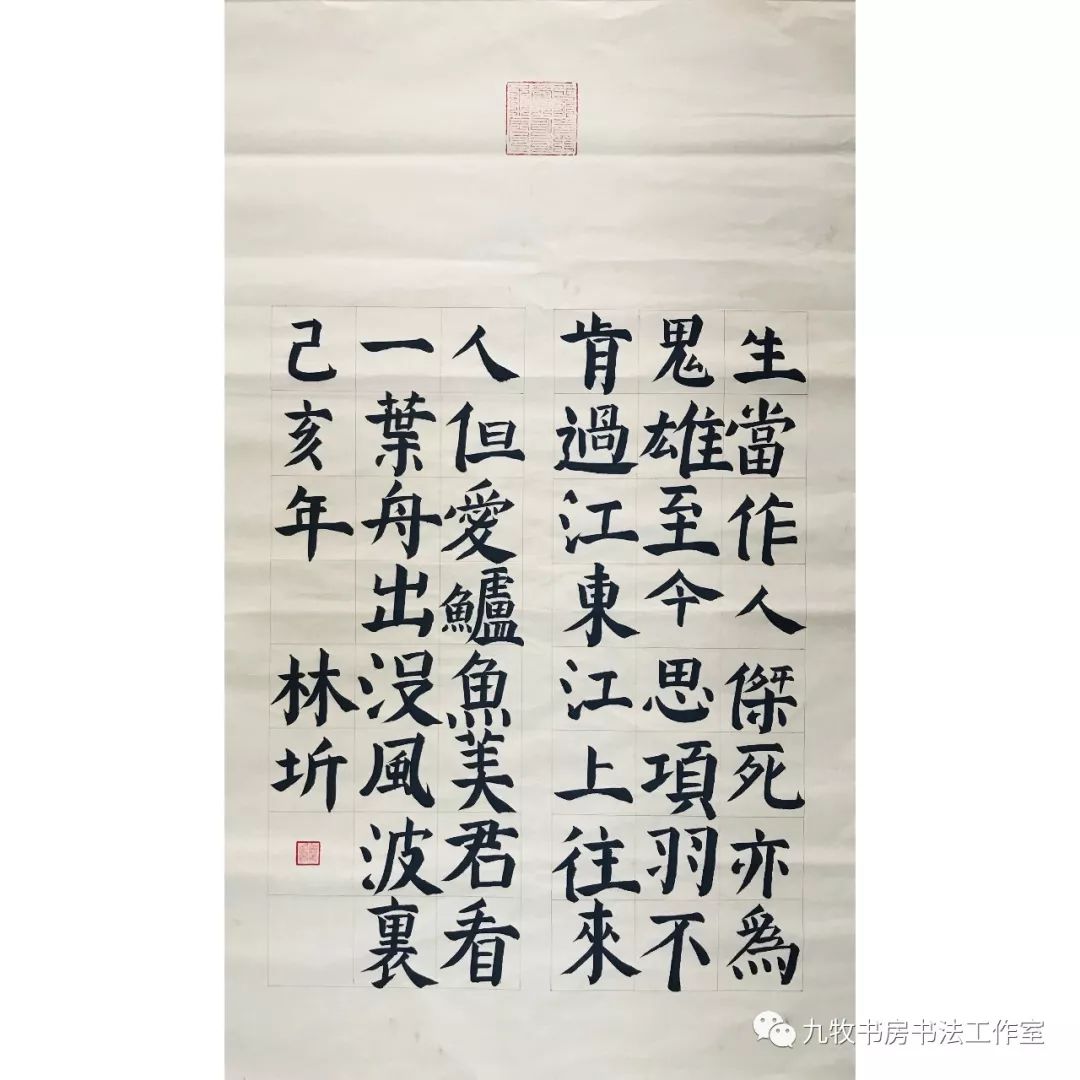 生當作人傑死亦爲
鬼雄至今思項羽不
肯過江東江上往來
人但愛鱸魚美君看
一葉舟出没風波裏
己亥年 林圻
九牧书房书法工作室